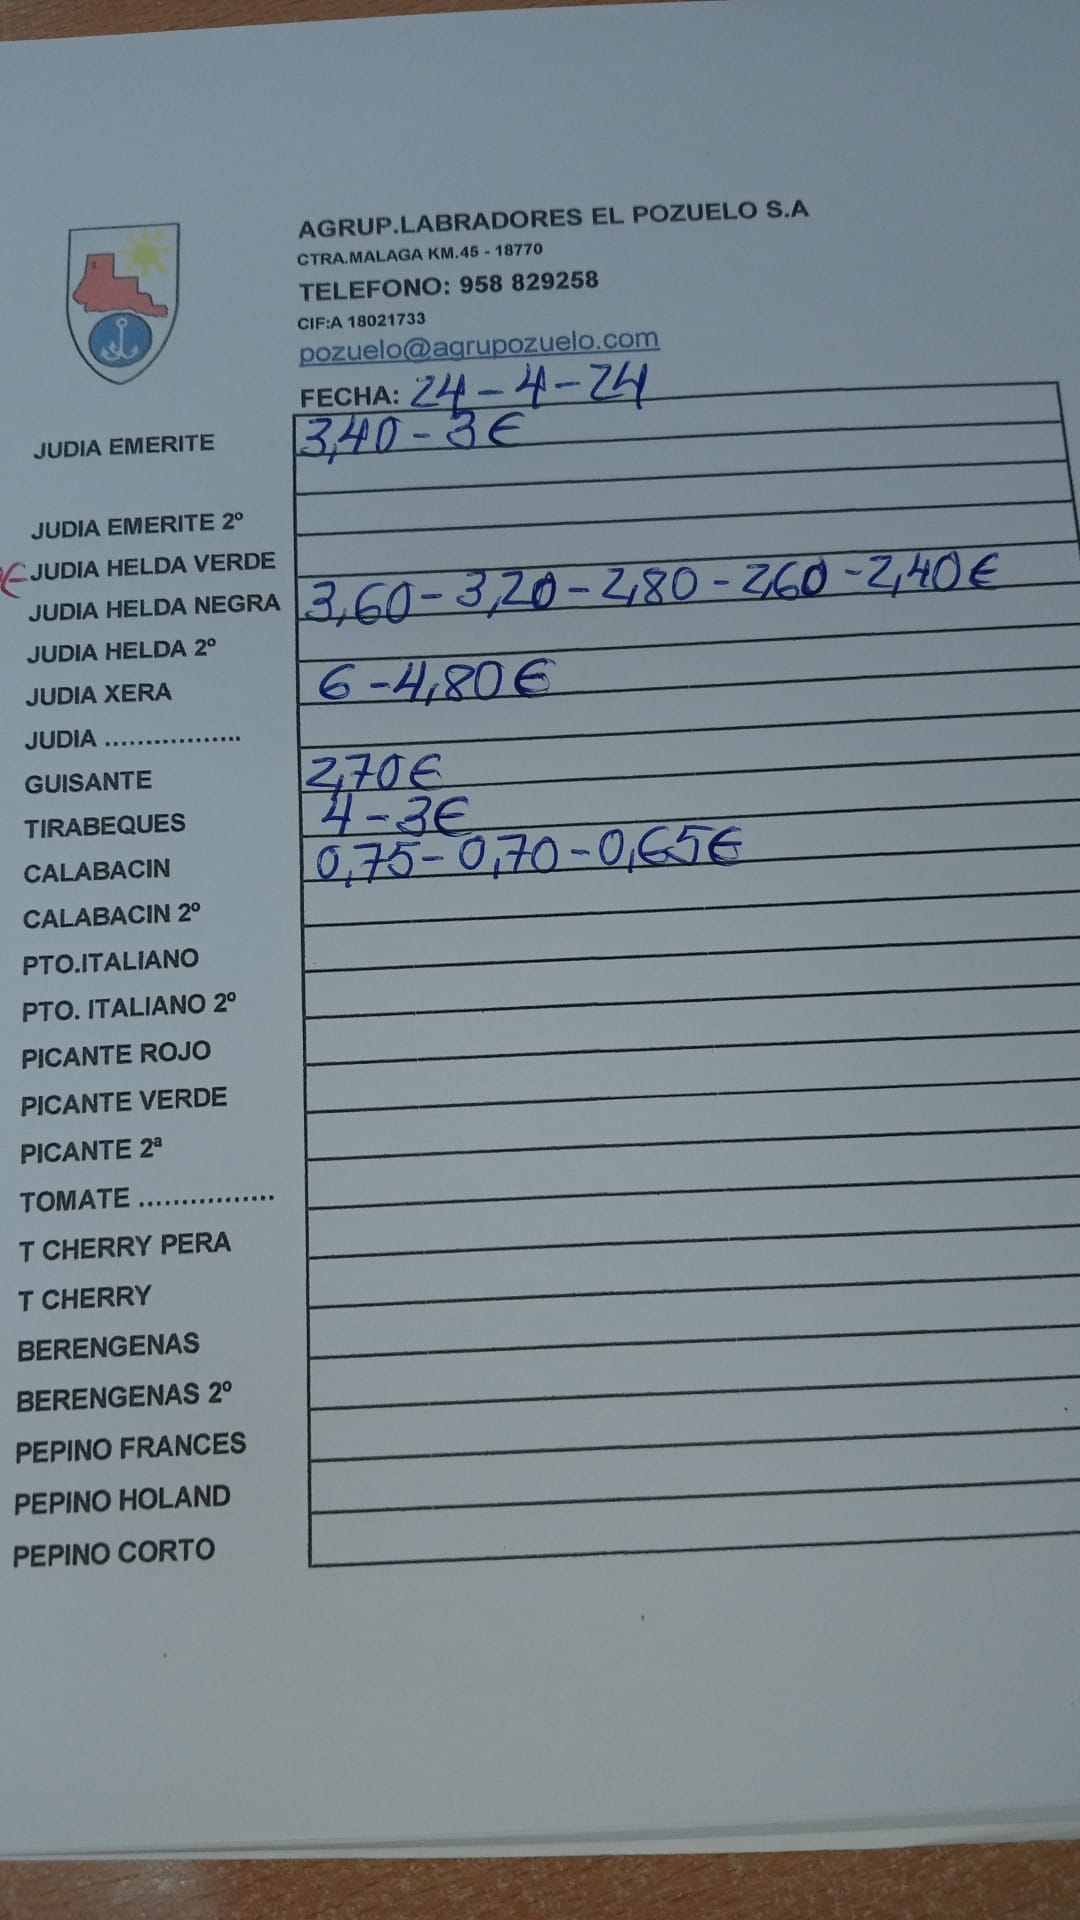 AGRUP.LABRADORES EL POZUELO S.A
CTRA.MALAGA KM.45 - 18770
TELEFONO: 958 829258
CIF:A 18021733
pozuelo@agrupozuelo.com
FECHA: 24-4-24
JUDIA EMERITE 3,40-3€
JUDIA EMERITE 2º
€ JUDIA HELDA VERDE
JUDIA HELDA NEGRA 3,60-3,20-2,80-2,60-2,40€
JUDIA HELDA 2º
JUDIA XERA 6-4,80€
JUDIA .................
GUISANTE 2,70€
TIRABEQUES 4-3€
CALABACIN 0,75-0,70-0,65€
CALABACIN 2º
PTO.ITALIANO
PTO. ITALIANO 2º
PICANTE ROJO
PICANTE VERDE
PICANTE 2ª
TOMATE .................
T CHERRY PERA
T CHERRY
BERENGENAS
BERENGENAS 2º
PEPINO FRANCES
PEPINO HOLAND
PEPINO CORTO